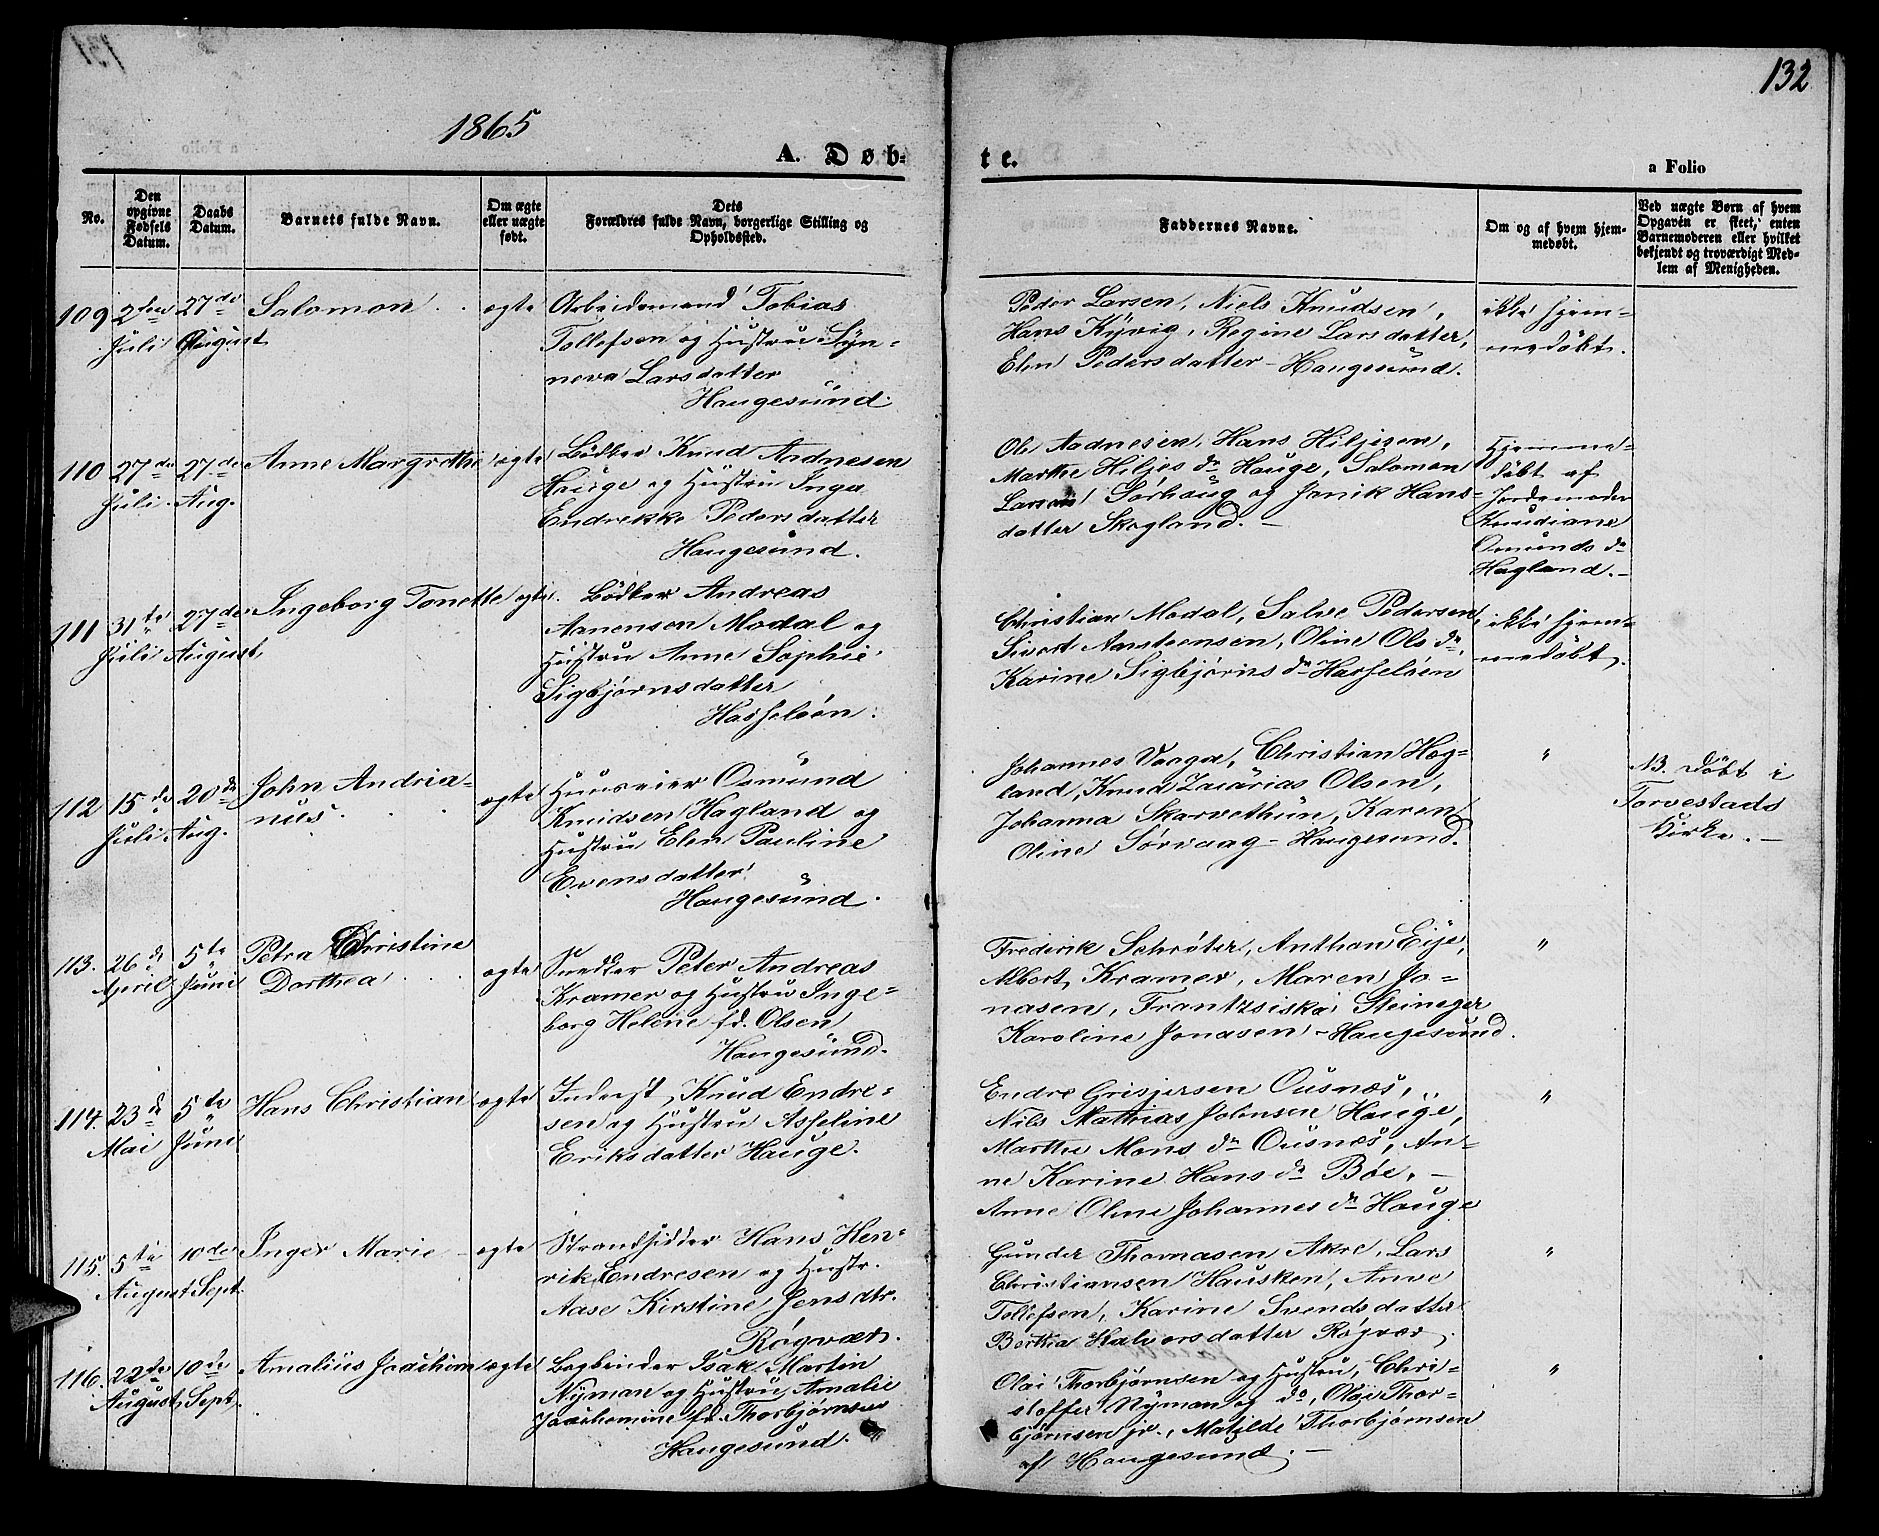 131
132
1865
A. Døb-
te.
a Folio
No.
Den opgivne Fødsels Datum.
Daabs Datum.
Barnets fulde Navn.
Om ægte eller uægte født.
Dets Forældres fulde Navn, borgerlige Stilling og Opholdssted.
Faddernes Navne.
Om og af hvem hjemmedøbt.
Ved uægte Børn af hvem Opgaven er skeet, enten Barnemoderen eller hvilket bekjendt og troværdigt Medlem af Menigheden.
109 2den Juli 27de August Salomon ægte
Arbeidsmand Tobias
Tollefsen og Hustru Syn-
neva Larsdatter
Haugesund.
Peder Larsen, Niels Knudsen,
Hans Kyvig, Regine Larsdatter,
Elen Pedersdatter - Haugesund.
ikke hjem-
medøbt.
110 27de Juli 27de Aug. Anne Margrethe ægte
Bødker Knud Andnesen
Hauge og Hustru Inga
Endrekke Pedersdatter
Haugesund.
Ole Aadnesen, Hans Hiljesen,
Marthe Hiljes dr Hauge, Salomon
Larsen Sørhaug og Janik Hans-
datter Skogland. -
Hjemme-
døbt af
Jordemoder
Knudiane
Osmunds dr
Hagland. -
111 31te Juli 27de August, Ingeborg Tonette ægte.
Bødker Andreas
Aanensen Modal og
Hustru Anne Sophie
Sigbjørnsdatter
Hasseløen.
Christian Modal, Salve Pedersen,
Sivert Aanstensen, Oline Ols dr,
Karine Sigbjørns dr Hasseløen
ikke hjem-
medøbt.
112 15de Juli 20de Aug. John Andria-
nus. ægte
Huuseier Osmund
Knudsen Hagland og
Hustru Elen Pauline
Evensdatter
Haugesund.
Johannes Vaage, Christian Hog-
land, Knud Zacarias Olsen,
Johanna Skarvethun, Karen
Oline Sørvaag - Haugesund.
"
NB. døbt i
Torvestads
Kirke. -
113. 26de April 5te Juni Petra Christine
Dorthea ægte
Snedker Peter Andreas
Kramer og Hustru Inge-
borg Helene fd. Olsen
Haugesund.
Frederik Schrøter, Anthon Eije,
Albert Kramer, Maren Jo-
nasen, Frantzsiska Steineger
Karoline Jonasen - Haugesund.
"
114. 23de Mai 5te Juni Hans Christian ægte
Inderst, Knud Endre-
sen og Hustru Asseline
Eriksdatter Hauge.
Endre Grisjersen Ousnæs,
Nils Mathias Johnsen Hauge,
Marthe Mons dr Ousnæs, An-
ne Karine Hans dr Bøe, -
Anne Oline Johannes dr Hauge
"
115. 5te August 10de Sept. Inger Marie ægte
Strandsidder Hans Hen-
rik Endresen og Hustr.
Aase Kirstine Jensdtr.
Røgvær.
Gunder Thomasen Akre, Lars
Christiansen Hausken, Anne
Tollefsen, Karine Svendsdatter
Berthe Halvorsdatter Røgvær.
"
116. 22de August 10de Sept. Amalius Joachim ægte
Bogbinder Isak Martin
Nyman og Hustru Amalie
Joachomine fd. Thorbjørnsen
Haugesund.
Olai Thorbjørnsen og Hustru, Chri-
stoffer Nyman og do, Olai Thor-
bjørnsen jr., Matilde Thorbjørnsen
af Haugesund. -
"